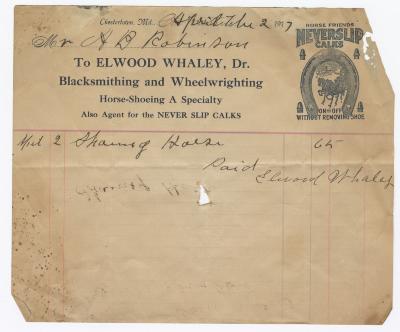 Chestertown, Md., April the 2 1917
Mr A B Robinson
To ELWOOD WHALEY, Dr.
Blacksmithing and Wheelwrighting
Horse-Shoeing A Specialty
Also Agent for the NEVER SLIP CALKS
HORSE FRIENDS
NEVERSLIP
CALKS
ON AND OFF
WITHOUT REMOVING SHOE
2 Shoeing Horse 65
Paid
Elwood Whaley